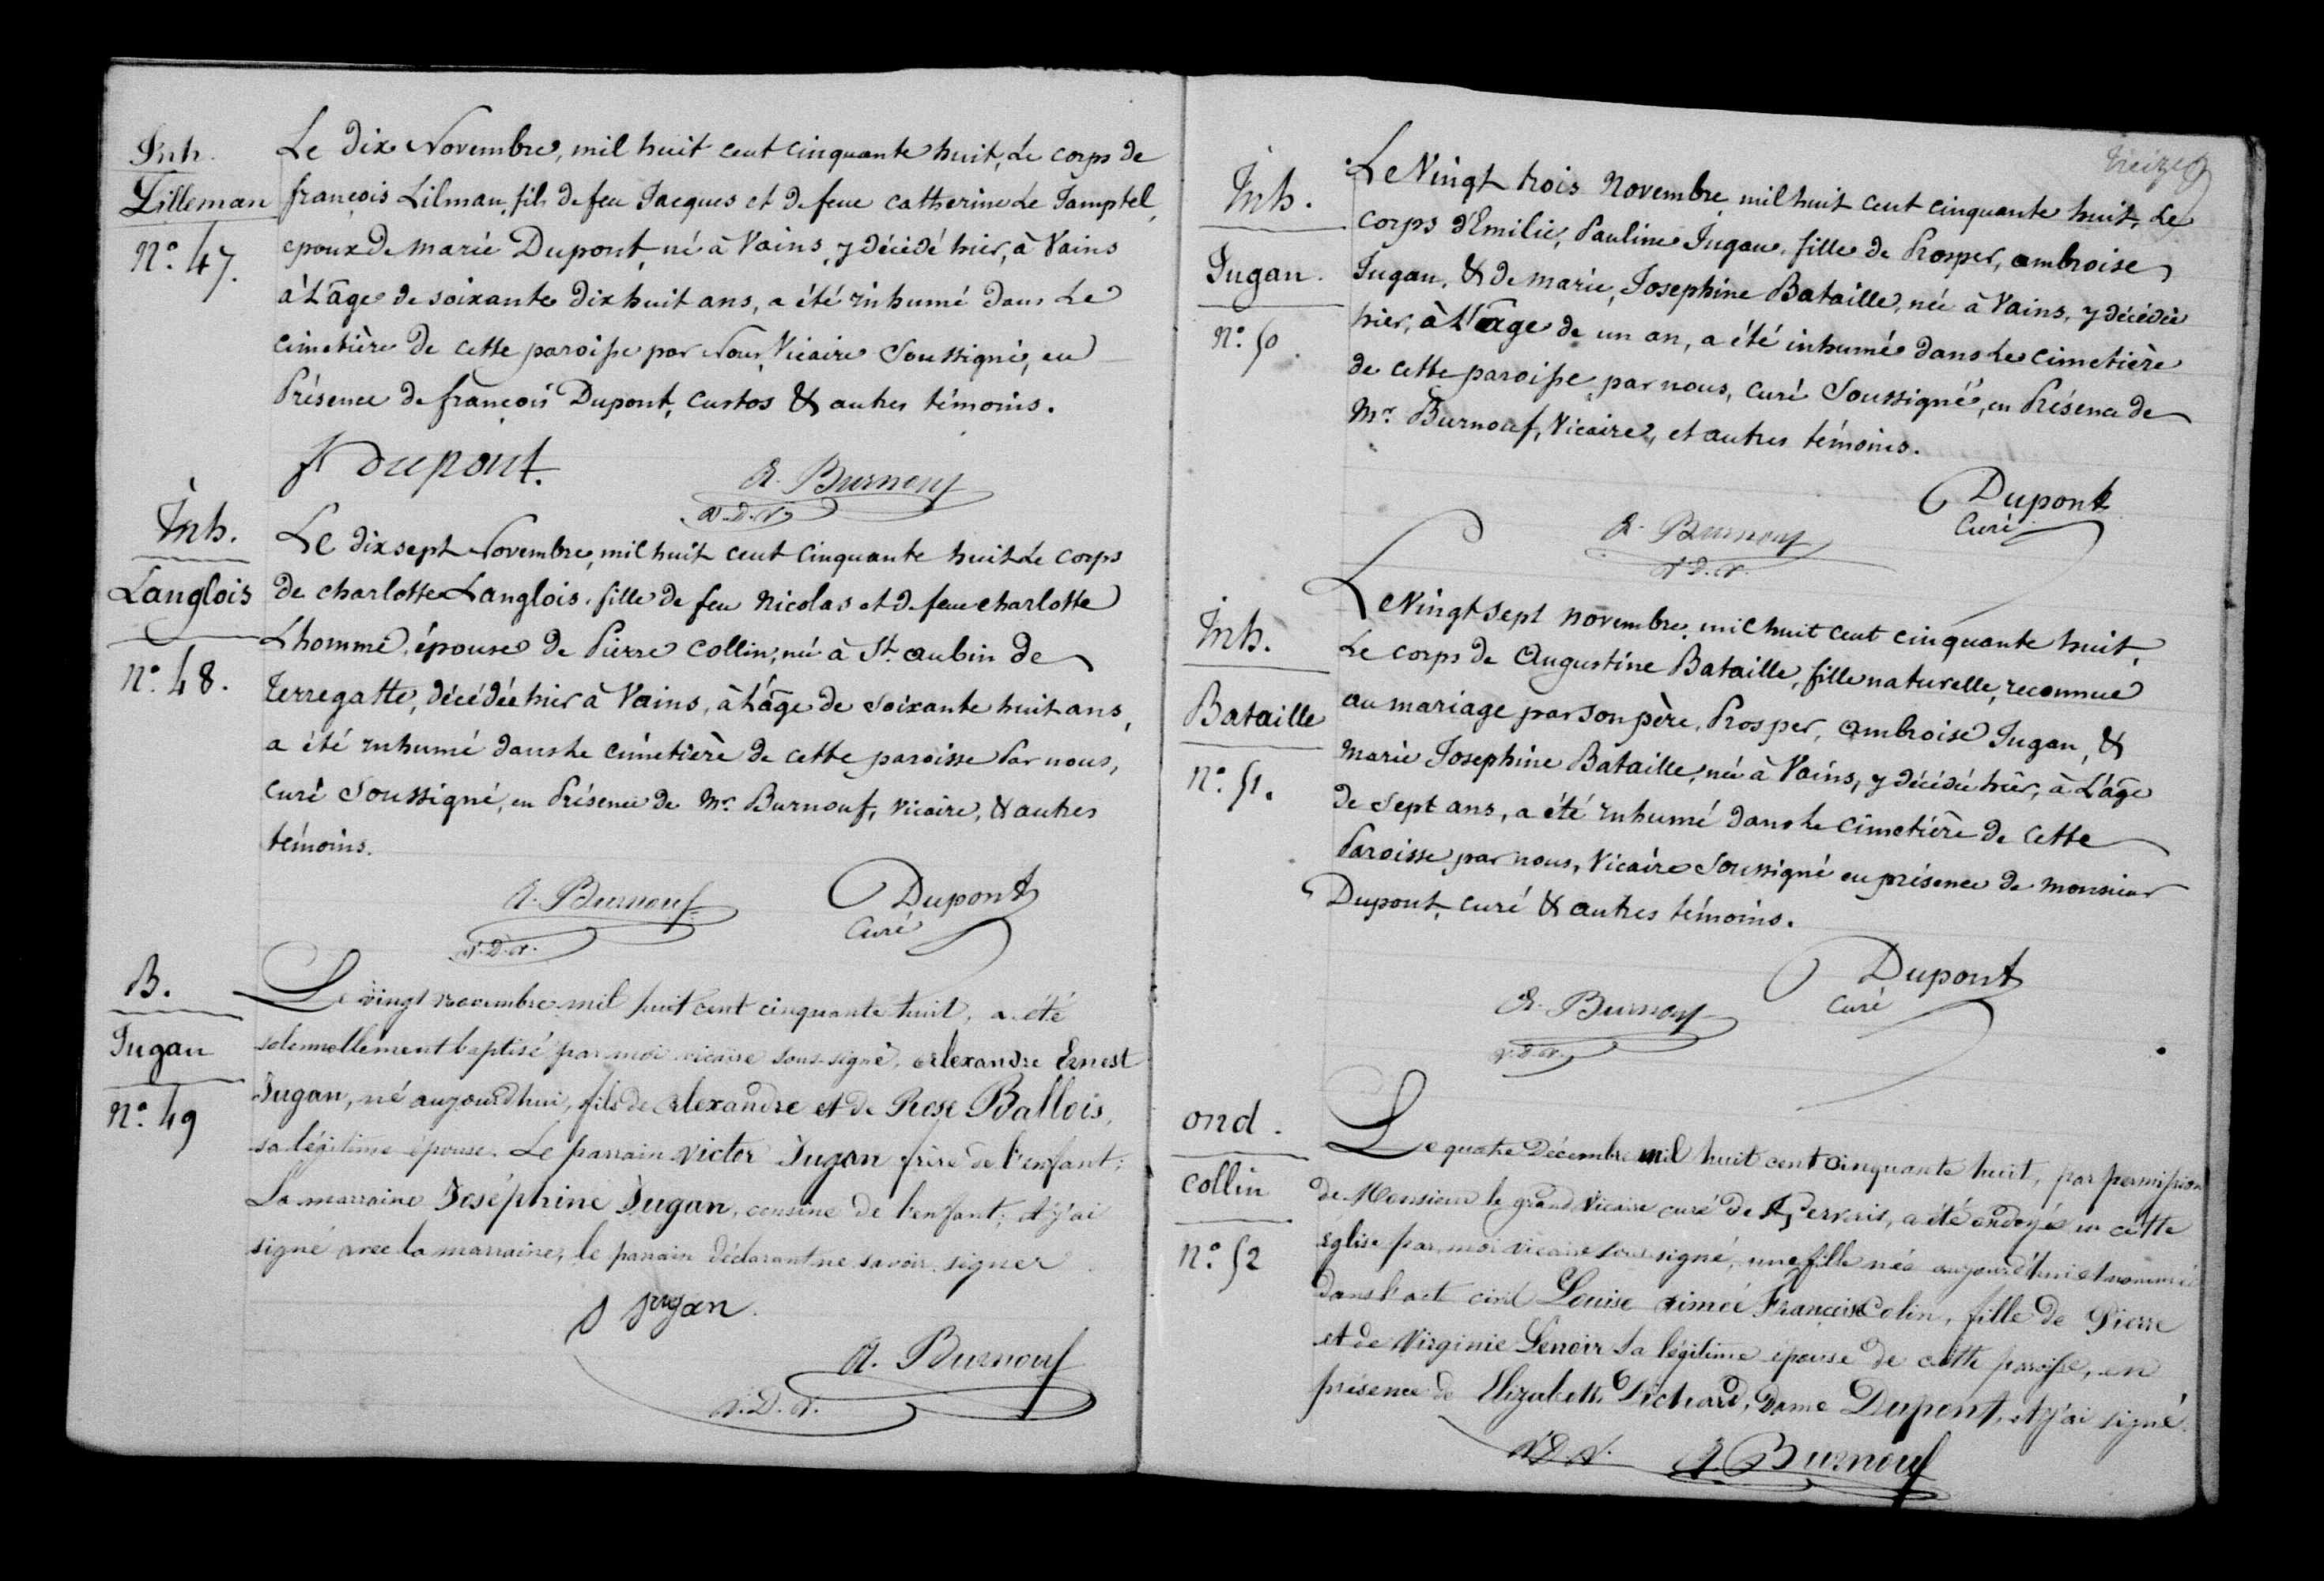 Inh.
Lilleman
N.° 47.
Le dix Novembre, mil huit cent cinquante huit, Le corps de
françois Lilman, fils de feu Jacques et de feue catherine Le Jamptel,
epoux de marie Dupont, né à Vains, y décédé hier, à Vains
à L'âge de soixante dix huit ans, a été inhumé dans Le
cimetière de cette paroisse par Nous, Vicaire Soussigné, en
Présence de françois Dupont, custos & autres témoins.
f Dupont.
A. Burnouf
V.D.V.
Inh.
Langlois
N.° 48.
Le dix sept Novembre, mil huit cent cinquante huit Le corps
de charlotte Langlois, fille de feu Nicolas et de feue charlotte
Lhomme, épouse de Pierre Collin, née à St. aubin de
Terregatte, décédée hier à Vains, à L'âge de soixante huit ans,
a été inhumé dans Le cimetière de cette paroisse Par nous,
curé Soussigné, en Présence de Mr. Burnouf, Vicaire, & autres
témoins.
A. Burnouf
V.D.V.
Dupont
Curé
B.
Jugan
N.° 49
Le vingt novembre mil huit cent cinquante huit, a été
solennellement baptisé par moi vicaire sous-signé, Alexandre Ernest
Jugan, né aujourd'hui, fils de Alexandre et de Rose Ballois,
sa légitime épouse. Le parrain Victor Jugan frère de l'enfant;
La marraine Joséphine Jugan, cousine de l'enfant; et j'ai
signé avec la marraine, le parrain déclarant ne savoir signer.
J jugan.
A. Burnouf
V.D.V.
treize
Inh.
Jugan.
N.° 50.
Le Vingt trois Novembre mil huit cent cinquante huit, Le
corps d'Emilie, Pauline Jugan, fille de Prosper, ambroise
Jugan, & de marie, Josephine Bataille, née à Vains, y décédée
hier, à L'âge de un an, a été inhumé dans Le cimetière
de cette paroisse, par nous, curé Soussigné, en Présence de
Mr. Burnouf, Vicaire, et autres témoins.
A. Burnouf
V.D.V.
Dupont
Curé
Inh.
Bataille
N.° 51.
Le Vingt sept novembre, mil huit cent cinquante huit,
Le corps de Augustine Bataille, fille naturelle, reconnue
au mariage par son père, Prosper, ambroise Jugan, &
Marie Josephine Bataille, née à Vains, y décédée hier, à L'âge
de sept ans, a été inhumé dans Le Cimetière de Cette
Paroisse par nous, Vicaire Soussigné en présence de monsieur
Dupont, curé & autres témoins.
A. Burnouf
V.D.V.
Dupont
Curé
ond.
collin
N.° 52
Le quatre Décembre mil huit cent cinquante huit, par permission
de Monsieur le grand Vicaire curé de St Gervais, a été ondoyée en cette
église par moi vicaire sous-signé, une fille née aujourd'hui et nommée
dans l'acte civil Louise Aimée Françoise Colin, fille de Pierre
et de Virginie Lenoir sa légitime épouse de cette paroisse, en
présence de Elizabeth Pichard, Dame Dupont, et j'ai signé.
V.D.V. A. Burnouf